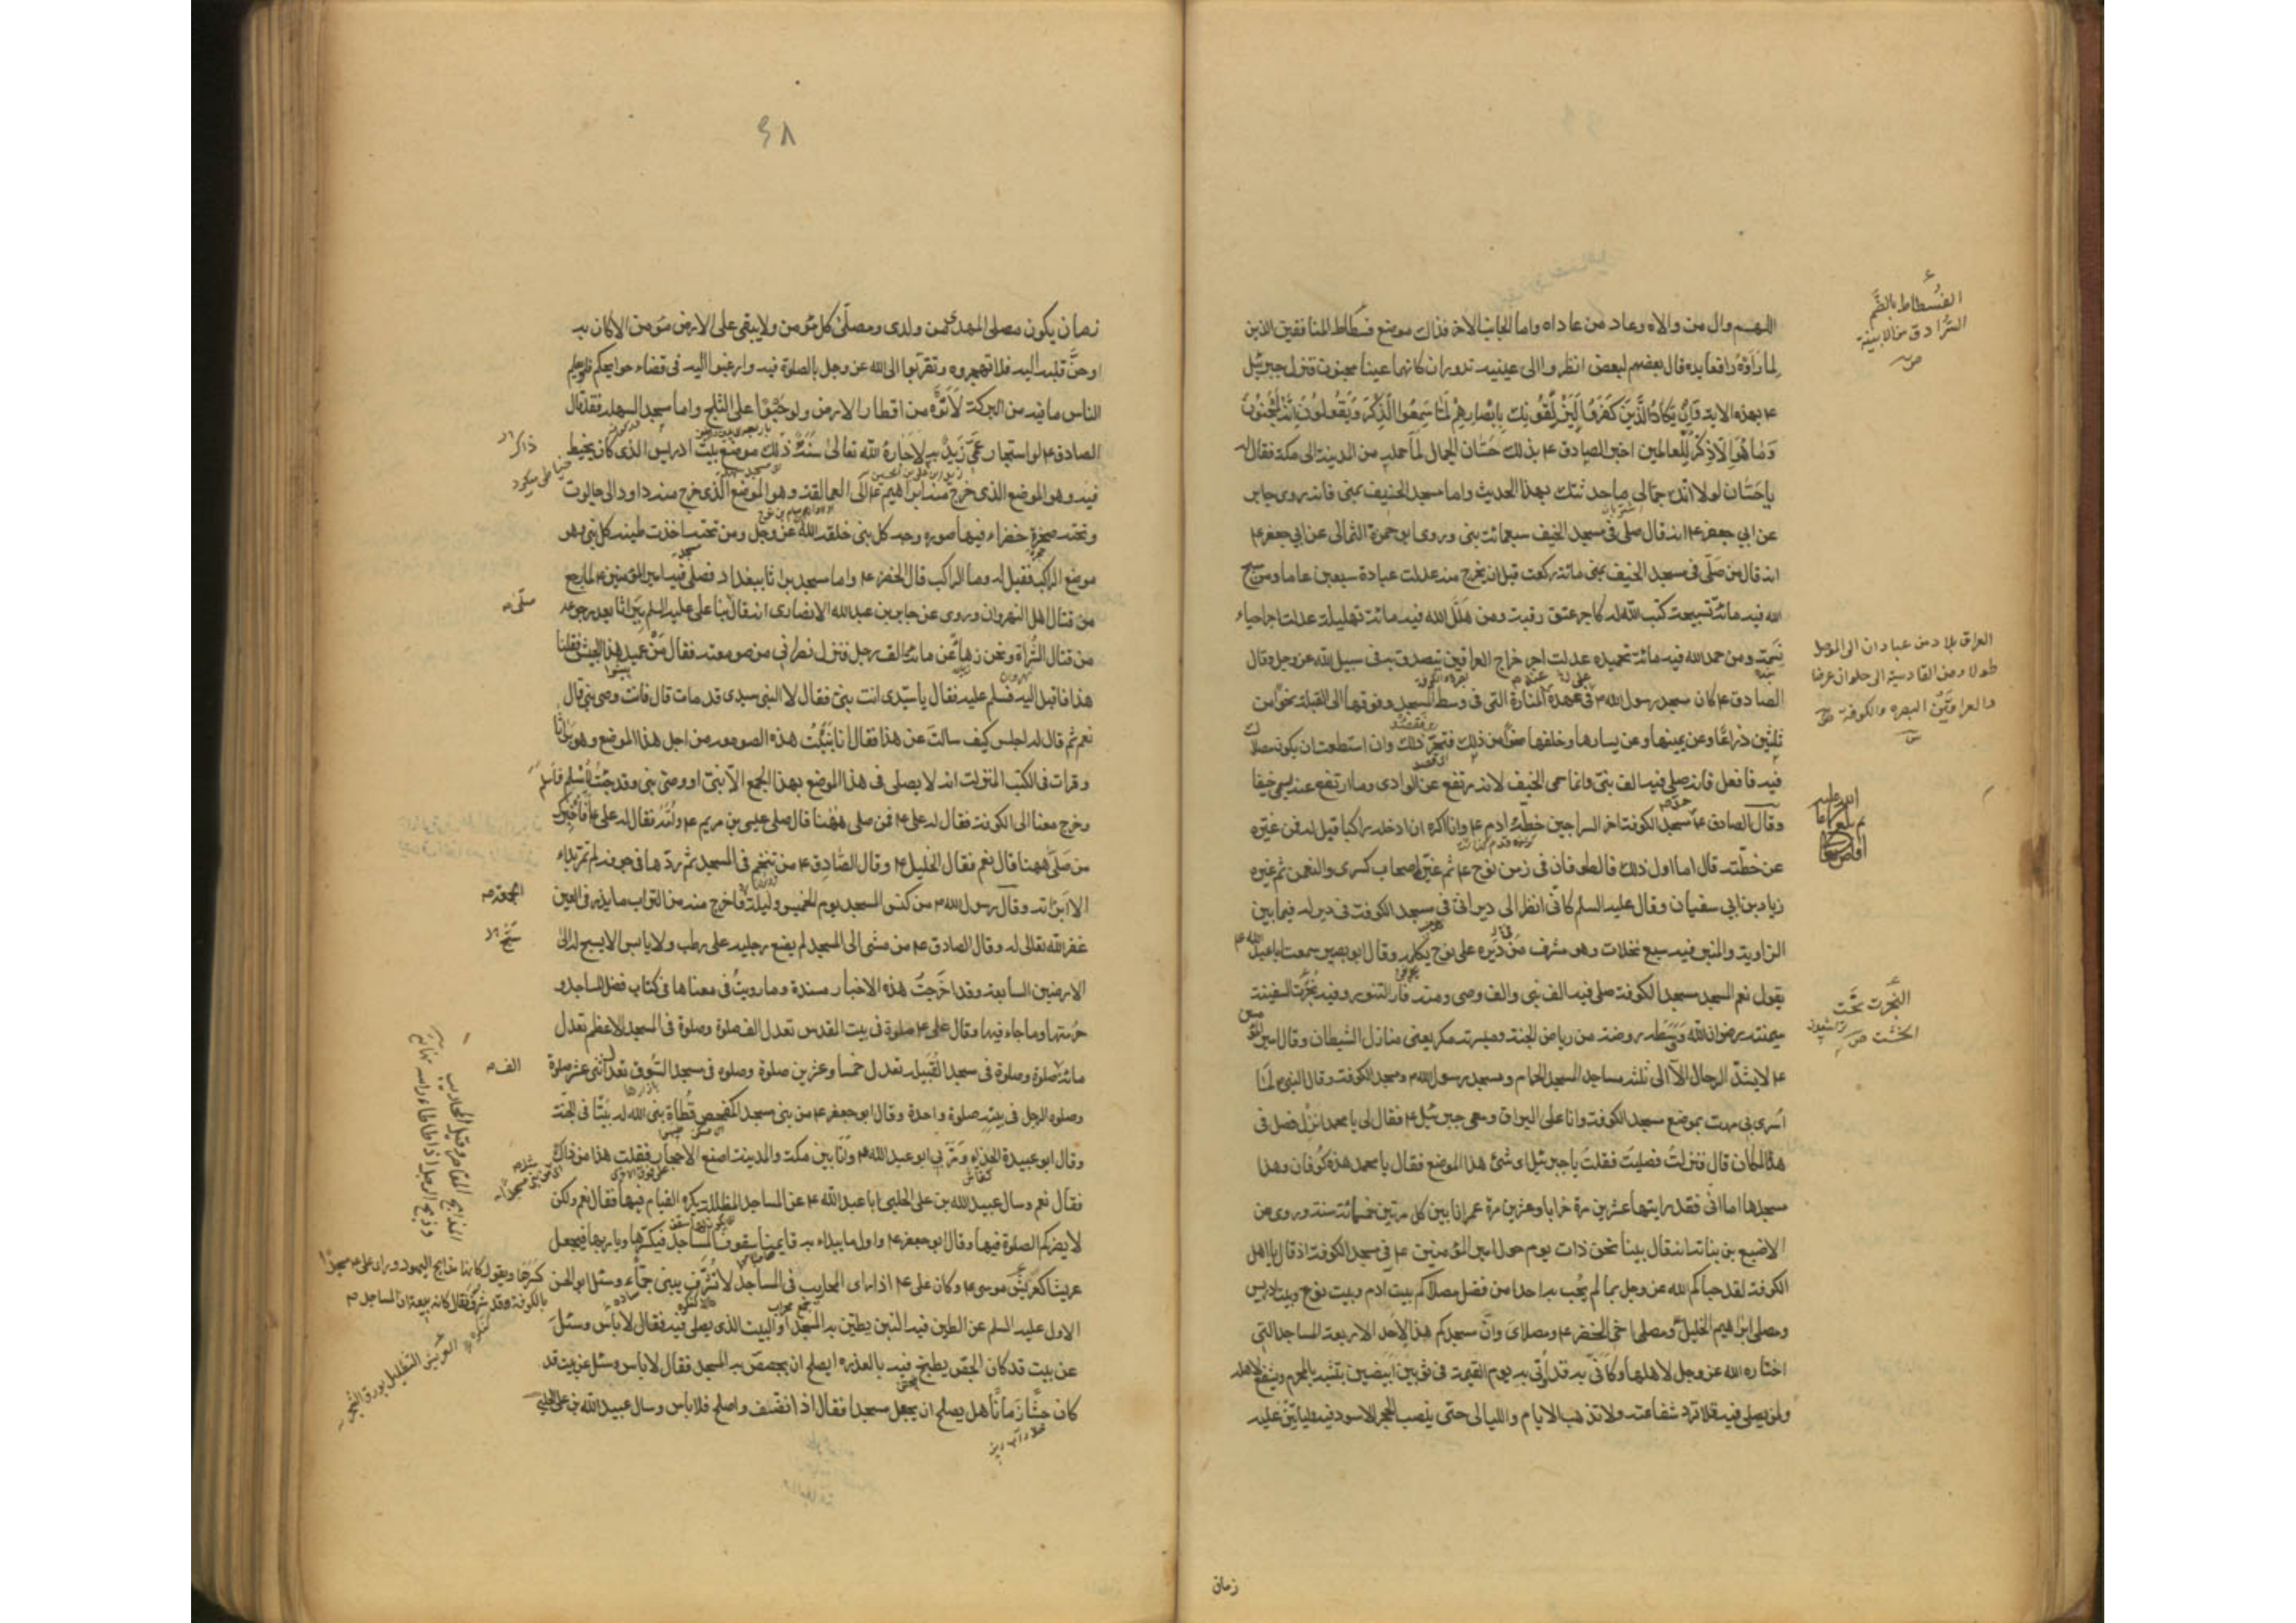 اللهم وال من والاه وعاد من عاداه واما الجانب الاخر فذاك موضع فسطاط المنافقين الذين
لما رأوه رافعا يده قال بعضهم لبعض انظروا الى عينيه تدوران كانهما عينا مجنون فنزل جبرئيل
ع بهذه الاية وَاِنْ يَكادُ الَّذينَ كَفَرُوا لَيُزْلِقُونَكَ بِاَبْصارِهِمْ لَمّا سَمِعُوا الذِّكْرَ وَيَقُولُونَ اِنَّهُ لَمَجْنُونٌ
وَما هُوَ اِلّا ذِكْرٌ لِلْعالَمين اخبر الصادق ع بذلك حسّان الجمال لما حمله من المدينة الى مكة فقال له
يا حسّان لولا انك جمّالى ما حدثتك بهذا الحديث واما مسجد الخيف بمنى فانه روى جابر
عن ابي جعفر ع انه قال صلى فى مسجد الخيف سبعمائة نبى وروى ابو حمزة الثمالى عن ابي جعفر ع
انه قال من صلّى فى مسجد الخيف بمنى مائة ركعة قبل ان يخرج منه عدلت عبادة سبعين عاما ومن سبح
الله فيه مائة تسبيحة كتب الله له كاجر عتق رقبة ومن هلّل الله فيه مائة تهليلة عدلت اجر احياء
نسمة ومن حمد الله فيه مائة تحميدة عدلت اجر خراج العراقين يتصدق به فى سبيل الله عز وجل وقال
الصادق ع كان مسجد رسول الله ص على عهده عند المنارة التى فى وسط المسجد وفوقها الى القبلة نحوا من
ثلثين ذراعًا وعن يمينها وعن يسارها وخلفها نحوا من ذلك فتحرّ ذلك وان استطعت ان يكون مصلاك
فيه فافعل فانه صلى فيه الف نبى وانما سمى الخيف لانه مرتفع عن الوادى وما ارتفع عنه يسمى خيفا
وقال الصادق ع حدّ مسجد الكوفة اخر السراجين خطّه ادم ع وانا اكره ان ادخله راكبا قيل له فمن غيّره
عن خطّته قال اما اول ذلك فالطوفان فى زمن نوح ع ثم غيّره اصحاب كسرى والنعمن ثم غيره
زياد بن ابي سفيان وقال عليه السلم كانى انظر الى ديرانى فى مسجد الكوفة فى دير له فيما بين
الزاوية والمنبر فيه سبع نخلات وهو مشرف من ديره على نوح يكلمه وقال ابو بصير سمعت ابا عبد الله ع
يقول نعم المسجد مسجد الكوفة صلى فيه الف نبى والف وصى ومنه فار التنور وفيه نُجرت السفينة
ميمنته رضوان الله ووسطه روضة من رياض الجنة وميسرته مكر يعنى منازل الشيطان وقال امير المؤمنين
ع لا يشدّ الرحال الّا الى ثلثة مساجد المسجد الحرام ومسجد رسول الله ص ومسجد الكوفة وقال النبى ص لمّا
اُسرى بى مررت بموضع مسجد الكوفة وانا على البراق ومعى جبرئيل ع فقال لى يا محمد انزل فصل فى
هذا المكان قال فنزلت فصليت فقلت يا جبرئيل اى شئ هذا الموضع فقال يا محمد هذه كوفان وهذا
مسجدها اما انى فقد رايتها عشرين مرة خرابا وعشرين مرة عمرانا بين كل مرتين خمسمائة سنة وروى عن
الاصبغ بن نباتة انه قال بينا نحن ذات يوم حول امير المؤمنين ع فى مسجد الكوفة اذ قال يا اهل
الكوفة لقد حباكم الله عز وجل بما لم يُحب به احدا من فضل مصلاكم بيت ادم وبيت نوح وبيت ادريس
ومصلى ابراهيم الخليل ومصلى اخى الخضر ع ومصلاى وانّ مسجدكم هذا لاحد الاربعة المساجد التى
اختاره الله عز وجل لاهلها وكانّى به قد اُتى به يوم القيمة فى ثوبين ابيضين يتشبه بالمحرم ويشفع لاهله
ولمن يصلى فيه فلا ترد شفاعته ولا تذهب الايام والليالى حتى ينصب الحجر الاسود فيه وليأتينّ عليه
زمان
الفُسطاط بالضَّم
السُّرادق من الابنية
ص
العراق بلاد من عبادان الى الموصل
طولا ومن القادسية الى حلوان عرضا
والعراقين البصرة والكوفة ص
النَّجرت نَحَت
الخشب ص
٤٨
زمان يكون مصلى المهدى من ولدى ومصلّى كل مؤمن ولا يبقى على الارض مؤمن الا كان به
او حنّ قلبه اليه فلا تهجروه وتقربوا الى الله عز وجل بالصلوة فيه وارغبوا اليه فى قضاء حوايجكم فلو يعلم
الناس ما فيه من البركة لاتوه من اقطار الارض ولو حَبْوًا على الثلج واما مسجد السهلة فقد قال
الصادق ع لو استجار عمّى زيدٌ به لاجاره الله تعالى سنة ذلك موضع بيت ادريس الذى كان يخيط
فيه وهو الموضع الذى خرج منه ابراهيم ع الى العمالقة وهو الموضع الذى خرج منه داود الى جالوت
وتحته صخرة خضراء فيها صورة وجه كل نبى خلقه الله عز وجل ومن تحته اخذت طينة كل نبى وهو
موضع الراكب فقيل له وما الراكب قال الخضر ع واما مسجد براثا ببغداد فصلى فيه امير المؤمنين ع لما رجع
من قتال اهل النهروان وروى عن جابر بن عبد الله الانصارى انه قال صلى بنا على عليه السلم ببراثا بعد رجوعه
من قتال الشُّراة ونحن زهاء عن مائة الف رجل فنزل نصرانى من صومعته فقال مَنْ عميد هذا الجيش فقلنا
هذا فاقبل اليه فسلم عليه فقال يا سيّدى انت نبىّ فقال لا النبى سيدى قد مات قال فانت وصى نبى قال
نعم ثم قال له اجلس كيف سالت عن هذا فقال انا بَنَيْتُ هذه الصومعة من اجل هذا الموضع وهو براثا
وقرات فى الكتب المنزلة انه لا يصلى فى هذا الموضع بهذا الجمع الّا نبىّ او وصى نبى وقد جئتُ اُسْلِم فاسلم
وخرج معنا الى الكوفة فقال له على ع فمن صلى ههُنا قال صلى عيسى بن مريم ع وامّه فقال له على ع افاُخبرك
من صلّى ههنا قال نعم فقال الخليل ع وقال الصّادق ع من تنخم فى المسجد ثم ردّها فى جوفه لم تمر بداء
الا ابرأته وقال رسول الله ص من كنس المسجد يوم الخميس وليلة الجمعة فاخرج منه من التراب ما يذر فى العين
غفر الله تعالى له وقال الصادق ع من مشى الى المسجد لم يضع رجليه على رطب ولا يابس الا يسبح له الى
الارضين السابعة وقد اخرجتُ هذه الاخبار مسندة وما رويتُ فى معناها فى كتاب فضل المساجد و
حُرمتها وما جاء فيها وقال على ع صلوة فى بيت المقدس تعدل الف صلوة وصلوة فى المسجد الاعظم تعدل
مائة صلوة وصلوة فى مسجد القَبيلة تعدل خمسا وعشرين صلوة وصلوة فى مسجد السُّوق تعدل اثنى عشر صلوة
وصلوة الرجل فى بيته صلوة واحدة وقال ابو جعفر ع من بنى مسجد كمفحص قَطاة بنى الله له بَيْتًا فى الجنّة
وقال ابو عبيدة الحذاء ومَرّ بى ابو عبد الله ع وانا بين مكة والمدينة اضع الاحجار فقلت هذا من ذاك
فقال نعم وسال عبيد الله بن على الحلبى ابا عبد الله ع عن المساجد المظللة يكره القيام فيها فقال نعم ولكن
لا يضركم الصلوة فيها وقال ابو جعفر ع اول ما يبداء به قايمنا سقوف المساجد فيكسّرها ويأمر بها فيجعل
عريشا كعريش موسى ع وكان على ع اذا راى المحاريب فى المساجد لا تُشرّف يبنى جمّاء وسئل ابو الحسن
الاول عليه السلم عن الطين فيه التبن يطيّن به المسجد او البيت الذى يصلى فيه فقال لا باس وسئل
عن بيت قد كان الجصّ يطبخ فيه بالعذرة ايصلح ان يجصّص به المسجد فقال لا باس وسئل عن بيت قد
كان حشًّا زمانًا هل يصلح ان يجعل مسجدا فقال اذا نظف واصلح فلا باس وسال عبيد الله بن على الحلبى
ذاكر
صلّى ص
الجمعة ص
سَبَّح
الف ص
المذابح المقاصر وقيل المحاريب
كسرها ويقول كانها مذابح اليهود وراى على ع مسجدًا
بالكوفة وقد شُرّف فقال كانه بيعة ان المساجد ص
العريش التظليل بورق الشجر